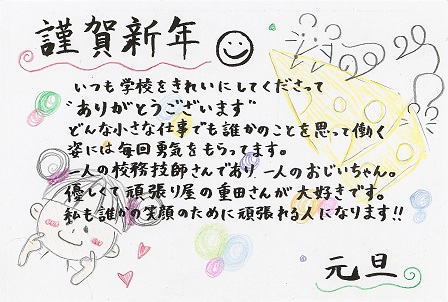 謹賀新年
いつも学校をきれいにしてくださって
"ありがとうございます"
どんな小さな仕事でも誰かのことを思って働く
姿には毎回勇気をもらってます。
一人の校務技師さんであり、一人のおじいちゃん。
優しくて頑張り屋の重田さんが大好きです。
私も誰かの笑顔のために頑張れる人になります!!
元旦